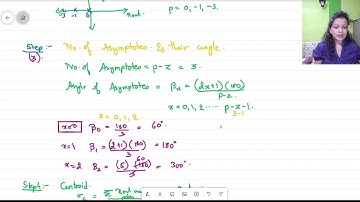 -3 -1 0 Real.
P = 0, -1, -3.
Step:- (3) No. of Asymptotes & their angle.
No. of Asymptotes = P - Z = 3.
Angle of Asymptotes = βx = (2x+1)(180) / P-Z
x = 0, 1, 2 ..... P-Z-1.
3-1
x = 0, 1, 2.
x=0 β0 = 180/3 = 60°
x=1 β1 = (2+1)(180)/3 = 180°
x=2 β2 = (5)(180)/3 = 300°
60
Step4:- Centroid.